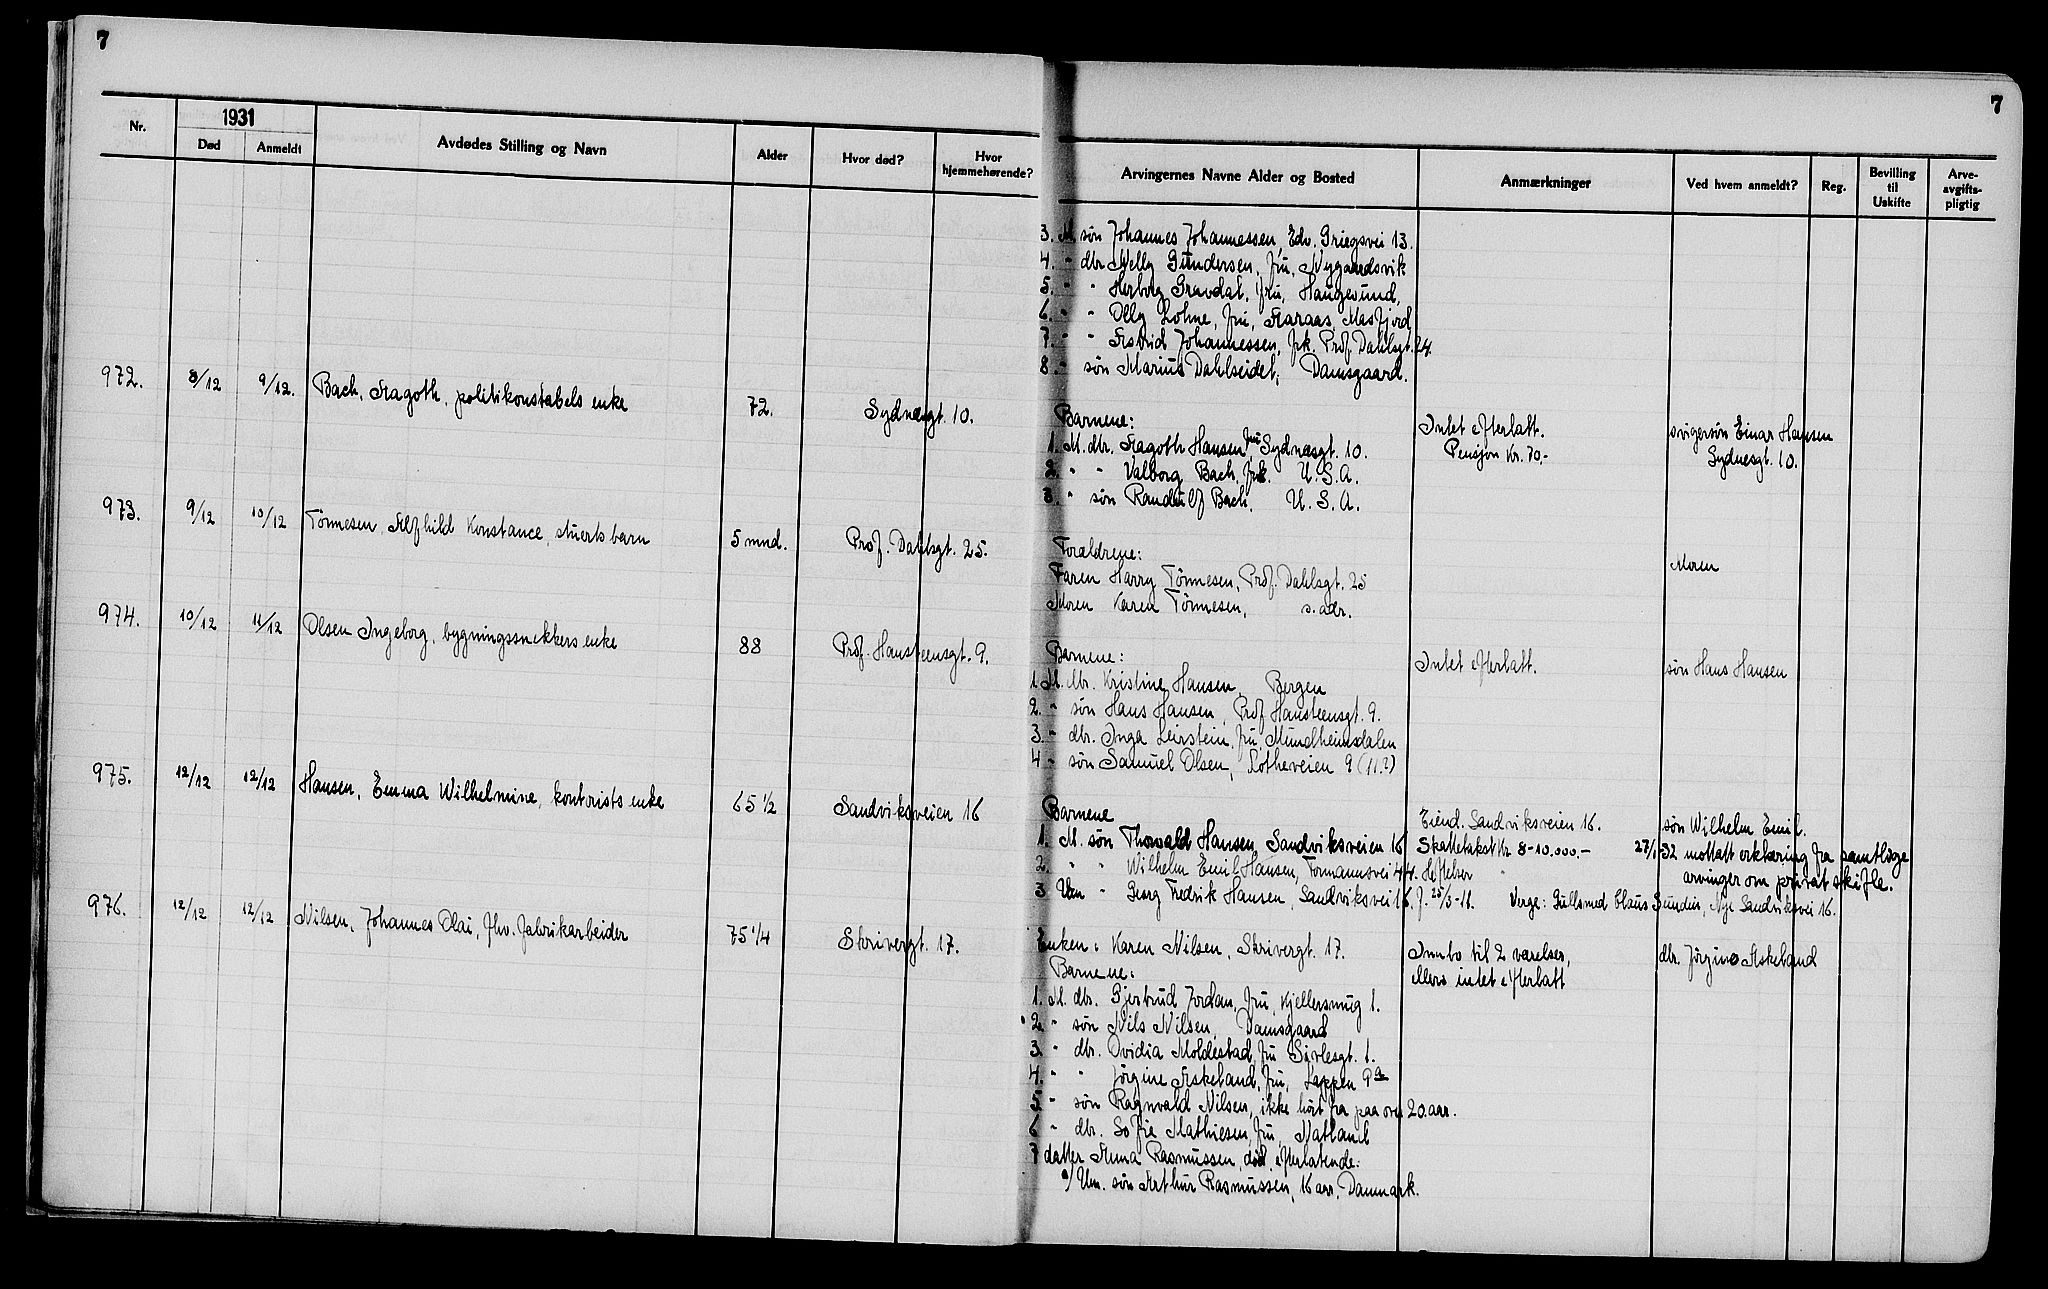 7
7
1931
Nr.
Død
Anmeldt
Avdødes Stilling og Navn
Alder
Hvor død?
Hvor hjemmehørende?
Arvingernes Navne Alder og Bosted
Anmærkninger
Ved hvem anmeldt?
Reg.
Bevilling til Uskifte
Arve-avgifts-pligtig
3. M. søn Johannes Johannessen, Edv. Griegsvei 13.
4. " dtr. Nelly Gundersen, fru, Nygaardsvik
5. " " Herborg Gravdal, fru, Haugesund,
6. " " Olly Lohne, fru, Masfjord
7. " " Astrid Johannessen, frk. Prof. Dahlsgt. 24.
8. " søn Marius Dahlseidet, Damsgaard.
972. 8/12 9/12. Bach, Aagoth, politikonstabels enke 72. Sydnesgt. 10.
Barnene:
1. M. dtr. Aagoth Hansen, fru Sydnesgt. 10.
2. " " Valborg Bach, frk. U.S.A.
3. " søn Randulf Bach, U.S.A.
Intet efterlatt.
Pensjon Kr. 70,-
svigersøn Einar Hansen
Sydnesgt. 10.
973. 9/12 10/12 Tönnesen, Alfhild Konstance, stuerts barn 5 mnd. Prof. Dahlsgt. 25.
Foraldrene:
Faren Harry Tönnesen, Prof. Dahlsgt. 25
Moren Karen Tönnesen, s. adr.
Moren
974. 10/12 11/12 Olsen Ingeborg, bygningssnekkers enke 88 Prof. Hansteensgt. 9.
Barnene:
1. M. dtr. Kristine Hansen, Bergen
2. " søn Hans Hansen, Prof Hansteensgt. 9.
3. " dtr. Inga Leirstein, fru, Mundheimsdalen
4 " søn Samuel Olsen, Lotheveien 9 (11?)
Intet efterlatt.
søn Hans Hansen
975. 12/12 12/12 Hansen, Emma Wilhelmine, kontorists enke 65 1/2 Sandviksveien 16
Barnene
1. M. søn Thorvald Hansen, Sandviksveien 16
2. " " Wilhelm Emil Hansen, Formannsvei 44.
3 Um " Georg Fredrik Hansen, Sandviksvei 16. f. 25/3-11. Verge: Gullsmed Claus Sundin, Nye Sandviksvei 16.
Eiend. Sandviksveien 16.
Skattetakst Kr 8-10.000.-
Heftelser "
søn Wilhelm Emil.
27/1-32 mottatt erklæring fra samtlige
arvinger om privat skifte.
976. 12/12 12/12 Nilsen, Johannes Olai, fhv. fabrikarbeider 75 1/4 Skrivergt. 17.
Enken: Karen Nilsen, Skrivergt. 17.
Barnene:
1. M. dtr. Gjertrud Jordan, fru, Kjellersmug 1.
2. " søn Nils Nilsen, Damsgaard
3. " dtr. Ovidia Moldestad, fru Sivlesgt. 1.
4. " " Jörgine Askeland, fru, Lappen 9a
5. " søn Ragnvald Nilsen, ikke hört fra paa over 20 aar.
6 " dtr. Sofie Mathiesen, fru, Natland
7 datter Anna Rasmussen, död, efterlatende:
a) Um. søn Arthur Rasmussen, 16 aar, Danmark.
Innbo til 2 værelser,
ellers intet efterlatt
dtr. Jörgine Askeland